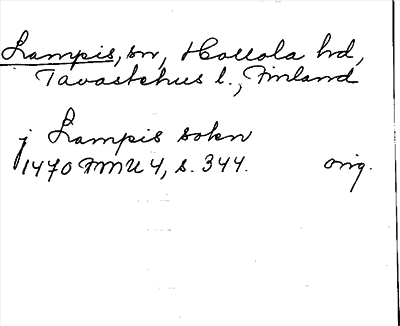 Lampis, sn, Hollola hd,
Tavastehus l., Finland
j Lampis sokn
1470 FMU 4, s. 344. orig.